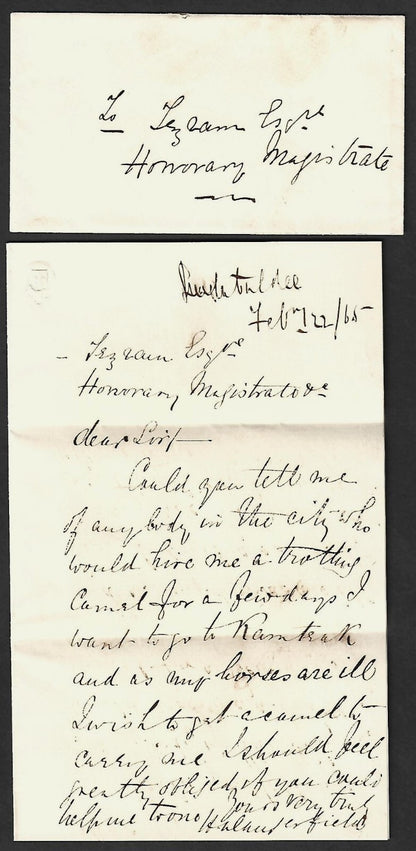 To Tezram Esqre
Honorary Magistrate
Feby 22/65
Tezram Esqre
Honorary Magistrate &c
dear Sir/
Could you tell me
of any body in the city who
would hire me a trotting
Camel for a few days I
want to go to Ramteak
and as my horses are ill
I wish to get a camel to
carry me I should feel
greatly obliged if you could
help me to one Yours very truly